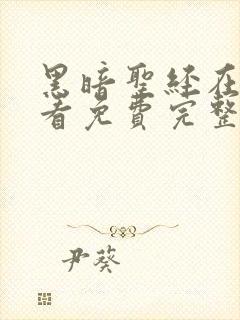 黑暗聖経在
看免費完整
尹葵